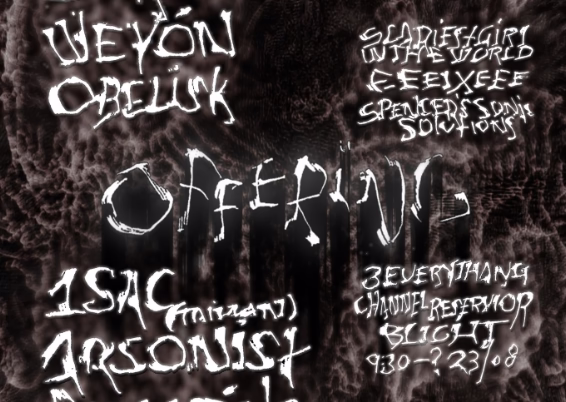 WEYÓN
OBELÏSK
SLADIESTGIRL
IN THE WORLD
FEEIXEEE
SPENCERS SONIC
SOLUTIONS
OFFERÏNG
1SAC
ARSONIST
3EVERYTHANG
CHANNEL RESERVIOR
BLIGHT
930-? 23/08